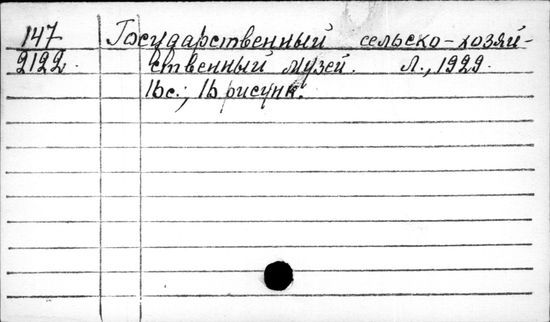 147 Государственный сельско-хозяй-
2122. ственный музей. Л., 1929.
16с.; 16 рисунк.